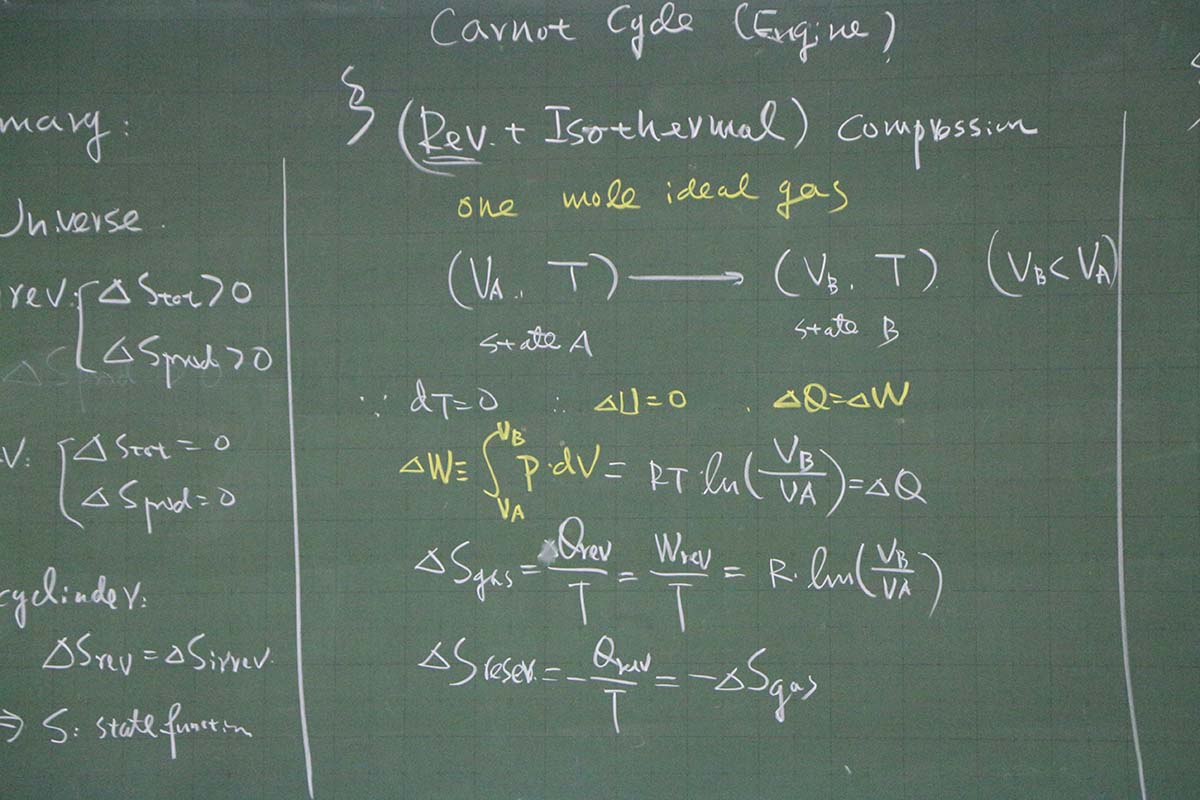 Carnot Cycle (Engine)
mary:
Universe.
rev. { ΔStot > 0
ΔSprod > 0
V: { ΔStot = 0
ΔSprod = 0
cyclinder:
ΔSrev = ΔSirrev.
⇒ S: state function
§ (Rev. + Isothermal) Compression
one mole ideal gas
(VA, T) ⟶ (VB, T) (VB < VA)
state A state B
∵ dT=0 ∴ ΔU=0 . ΔQ=ΔW
ΔW≡ ∫_VA^VB P·dV = RT·ln(VB/VA) = ΔQ
ΔSgas = Qrev/T = Wrev/T = R·ln(VB/VA)
ΔSreser. = -Qrev/T = -ΔSgas